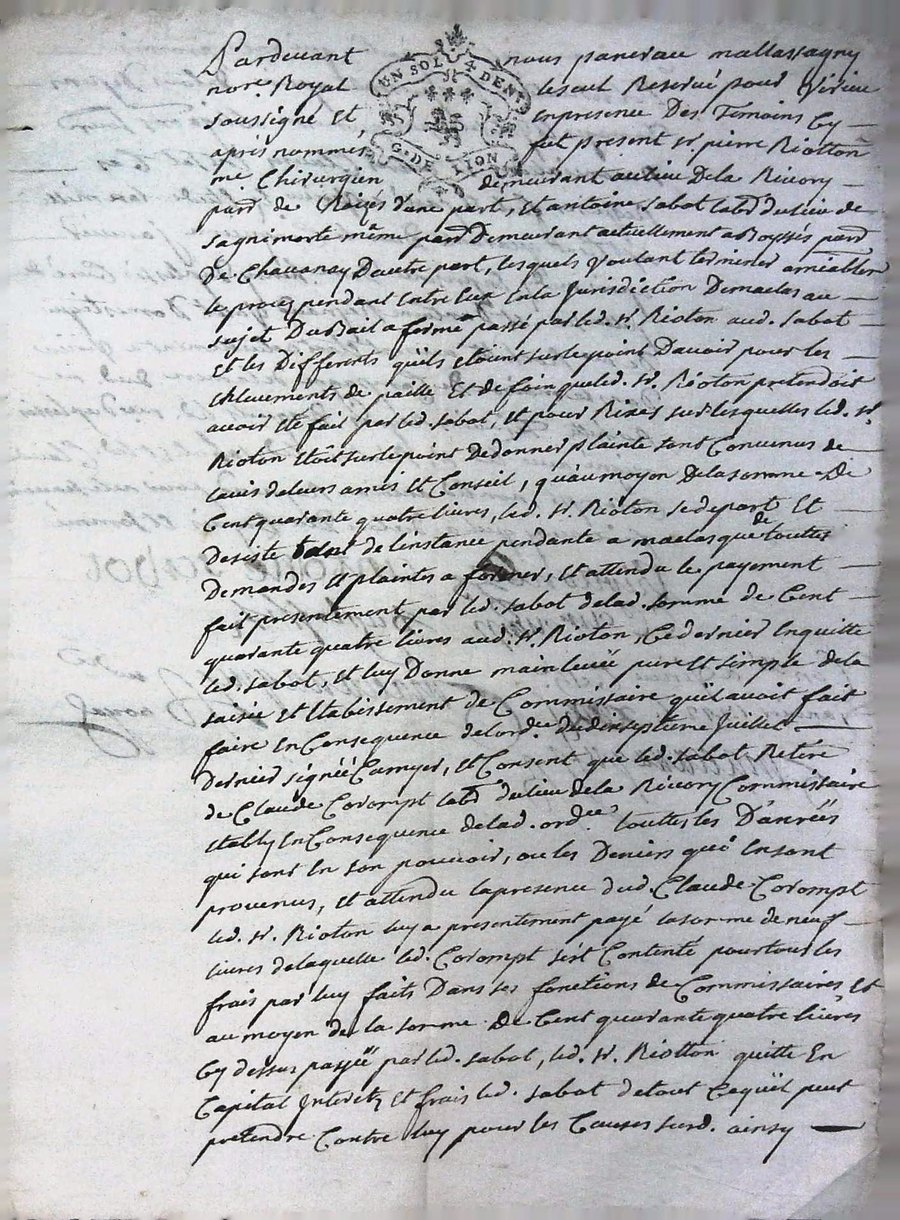 Pardevant nous pancrace mallassagny
UN SOL 4 DEN.
G. DE LION
nore. Royal le seul Reservé pour Virieu
soussigné et, en presence Des Temoins Cy
après nommés fut present sr. pierre Riotton
me. Chirurgien demeurant au lieu De la Rivory
parr. de d'une part, et antoine sabot labr. du lieu de
sagnimorte même parr. Demeurant actuellement a Boyssés parr.
De Chavanay D'autre part, lesquels voulant terminer amiablemt
le procez pendant Entre Eux En la Jurisdiction De maclas au
sujet Du Bail a ferme passé par led. sr. Rioton aud. sabot
et les Differents qu'ils etoint sur le point D'avoir pour les
Enlevements de paille et de foin que led. sr. Rioton pretendoit
avoir eté fait par led. sabot, et pour Rixes sur lesquelles led. sr.
Rioton etoit sur le point De donner plainte sont Convenus de
lavis de leurs amis et Conseil, qu'au moyen De la somme De
Cent quarante quatre livres, led. sr. Rioton se depart et
Desiste tant de l'instance pendante a maclas que de touttes
Demandes et plaintes a former, et attendu le payement
fait presentement par led. sabot de lad. somme de Cent
quarante quatre livres aud. sr. Rioton, Ce dernier En quitte
led. sabot, et luy Donne mainlevée pure et simple de la
saisie et Etabissement de Commissaire qu'il avoit fait
faire En Consequence de lordce. Du dix septieme Juillet
Dernier signée Camyer, et Consent que led. sabot Retire
de Claude Corompt labr. du lieu de la Rivory Commissaire
etably En Consequence de lad. ordce. touttes les Danrées
qui sont En son pouvoir, ou les Deniers qui En sont
provenus, et attendu la presence dud. Claude Corompt
led. sr. Rioton luy a presentement payé la somme de neuf
livres de laquelle led. Corompt s'est Contenté pour tous les
frais par luy faits Dans ses fonctions de Commissaires, et
au moyen de la somme De Cent quarante quatre livres
Cy dessus payée par led. sabot, led. sr. Riotton quitte En
Capital Interetz et frais led. sabot de tout Ce qu'il peut
pretendre Contre luy pour les Causes susd. ainsy